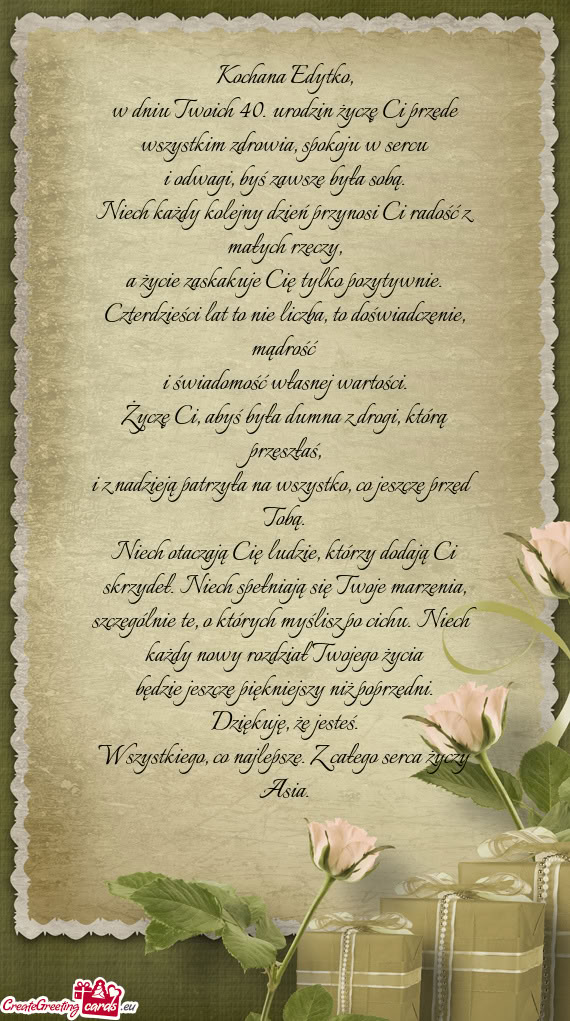 Kochana Edytko,
w dniu Twoich 40. urodzin życzę Ci przede
wszystkim zdrowia, spokoju w sercu
i odwagi, byś zawsze była sobą.
Niech każdy kolejny dzień przynosi Ci radość z
małych rzeczy,
a życie zaskakuje Cię tylko pozytywnie.
Czterdzieści lat to nie liczba, to doświadczenie,
mądrość
i świadomość własnej wartości.
Życzę Ci, abyś była dumna z drogi, którą
przeszłaś,
i z nadzieją patrzyła na wszystko, co jeszcze przed
Tobą.
Niech otaczają Cię ludzie, którzy dodają Ci
skrzydeł. Niech spełniają się Twoje marzenia,
szczególnie te, o których myślisz po cichu. Niech
każdy nowy rozdział Twojego życia
będzie jeszcze piękniejszy niż poprzedni.
Dziękuję, że jesteś.
Wszystkiego, co najlepsze. Z całego serca życzy
Asia.
CreateGreetingcards.eu